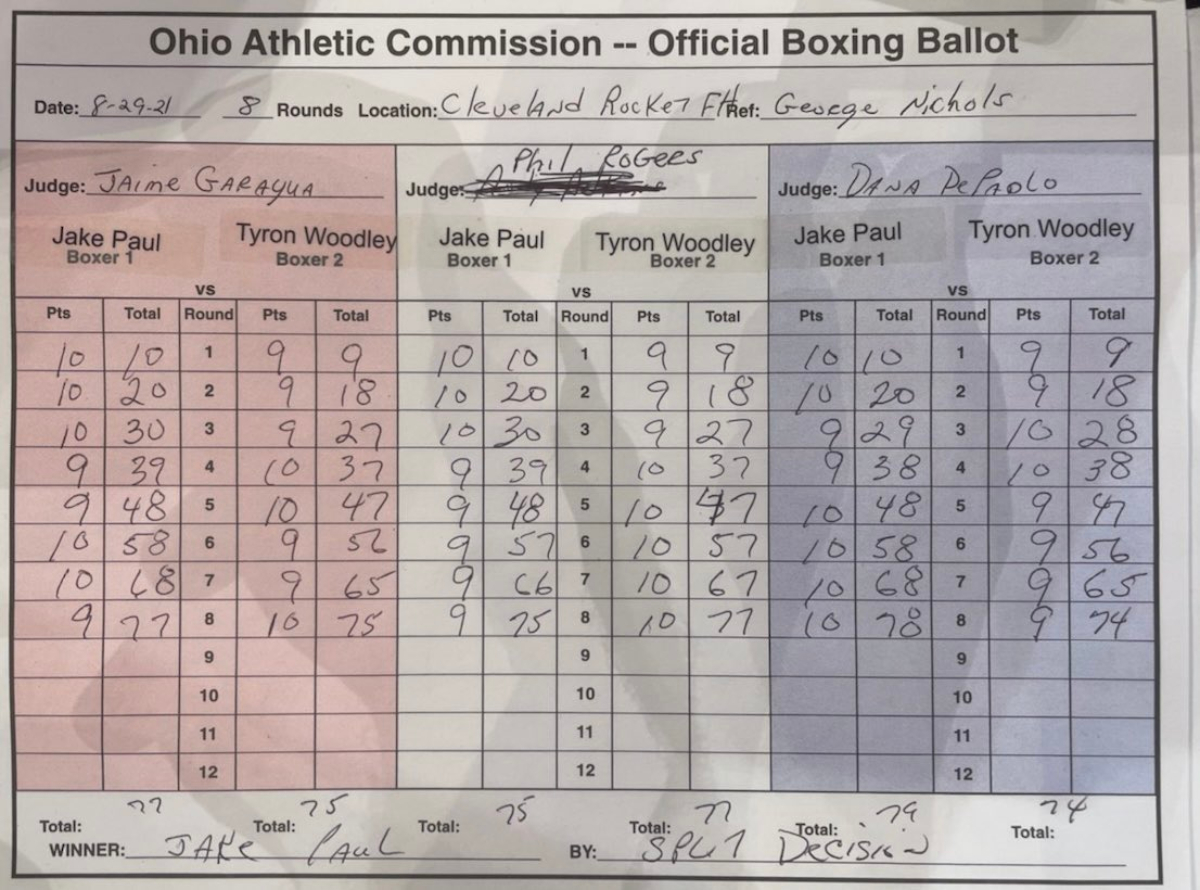 Ohio Athletic Commission -- Official Boxing Ballot
Date: 8-29-21 8 Rounds Location: Cleveland Rocket FH Ref: George Nichols
Judge: Jaime Garayua Judge: Phil Rogers Judge: Dana DePaolo
Jake Paul Tyron Woodley Jake Paul Tyron Woodley Jake Paul Tyron Woodley
Boxer 1 Boxer 2 Boxer 1 Boxer 2 Boxer 1 Boxer 2
vs vs vs
Pts Total Round Pts Total Pts Total Round Pts Total Pts Total Round Pts Total
10 10 1 9 9 10 10 1 9 9 10 10 1 9 9
10 20 2 9 18 10 20 2 9 18 10 20 2 9 18
10 30 3 9 27 10 30 3 9 27 9 29 3 10 28
9 39 4 10 37 9 39 4 10 37 9 38 4 10 38
9 48 5 10 47 9 48 5 10 47 10 48 5 9 47
10 58 6 9 56 9 57 6 10 57 10 58 6 9 56
10 68 7 9 65 9 66 7 10 67 10 68 7 9 65
9 77 8 10 75 9 75 8 10 77 10 78 8 9 74
9 9 9
10 10 10
11 11 11
12 12 12
Total: 77 Total: 75 Total: 75 Total: 77 Total: 79 Total: 74
WINNER: Jake Paul BY: Split Decision